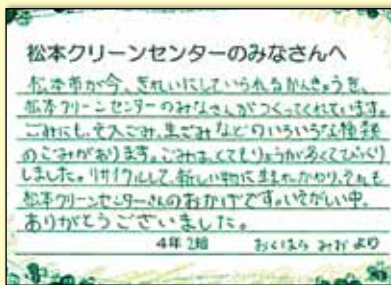 松本クリーンセンターのみなさんへ
松本市が今、きれいにしていられるかんきょうを、
松本クリーンセンターのみなさんがつくってくれています。
ごみにも、そ大ごみ、生ごみなどのいろいろな種類
のごみがあります。ごみは、とてもりょうが多くてびっくり
しました。リサイクルして、新しい物に生まれかわり、それも
松本クリーンセンターさんのおかげです。いそがしい中、
ありがとうございました。
4年2組 おくはら みおより